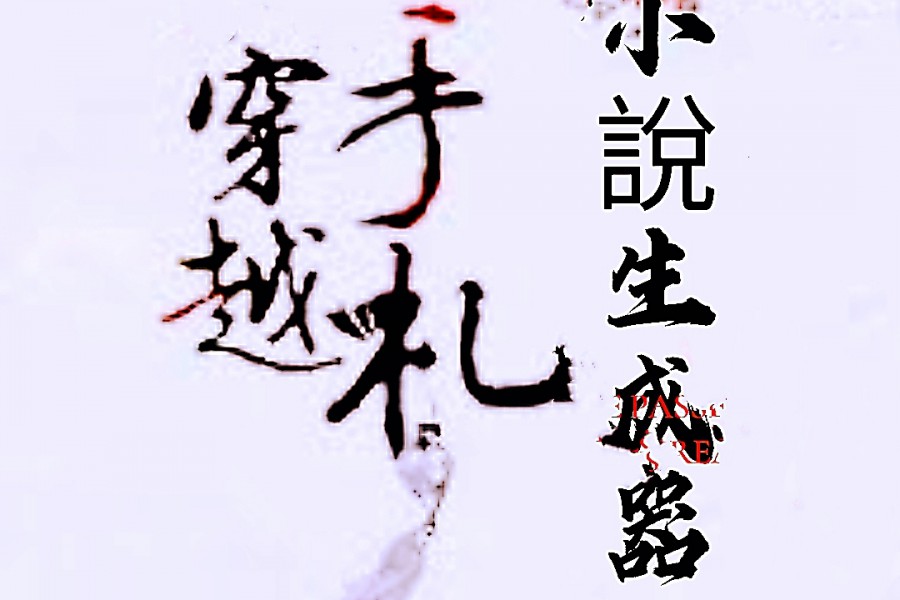 小說生成器
手札
穿越